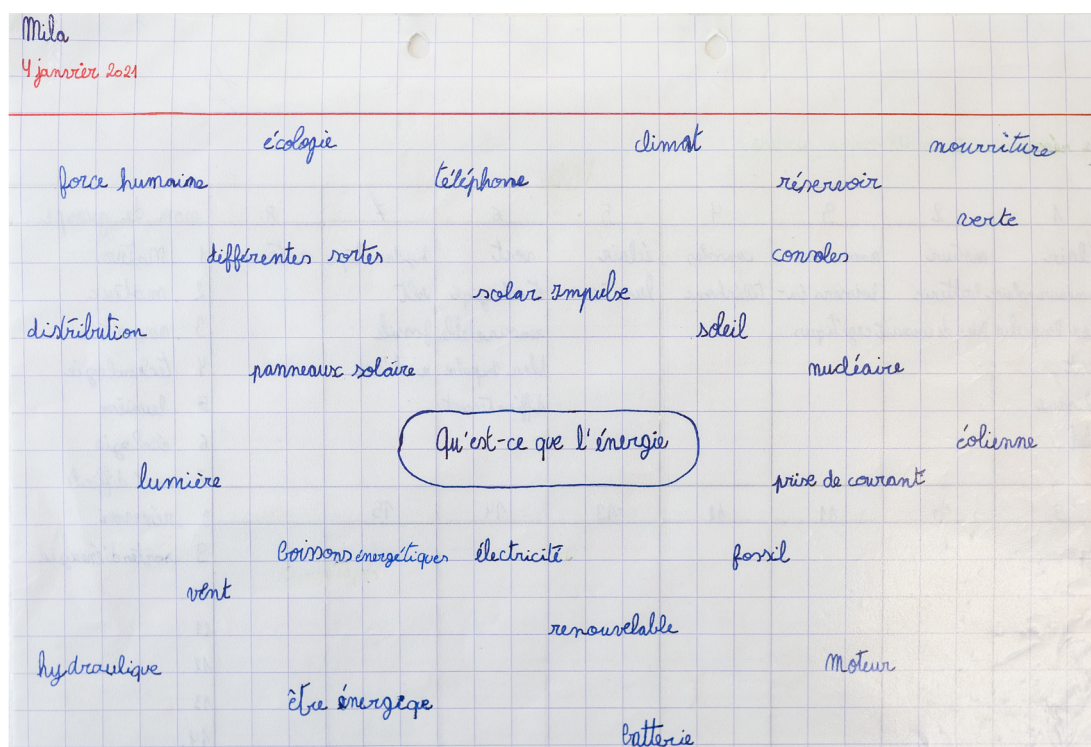 Mila
4 janvier 2021
écologie climat nourriture
force humaine téléphone réservoir
verte
différentes sortes consoles
solar Impulse
distribution soleil
panneaux solaire nucléaire
Qu'est-ce que l'énergie éolienne
lumière prise de courant
boissons énergétiques électricité fossil
vent
renouvelable
hydraulique moteur
être énergique
batterie